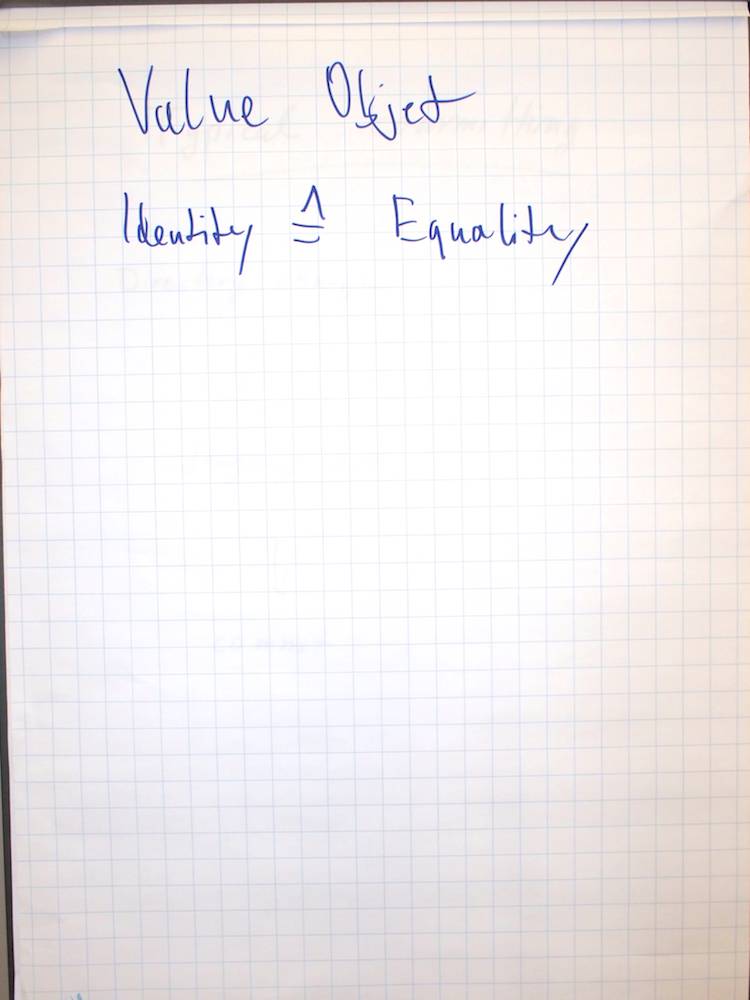 Value Object
Identity ≙ Equality